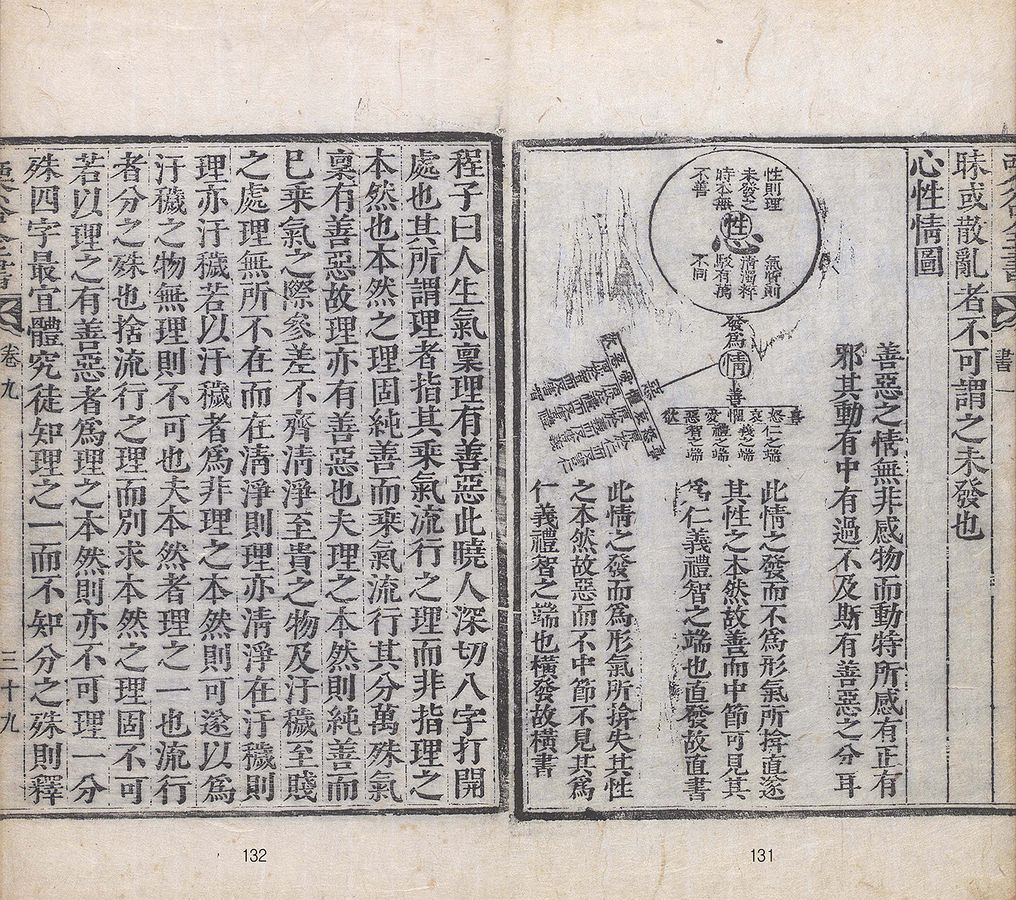 書一
昧或散亂者不可謂之未發也
心性情圖
善惡之情無非感物而動特所感有正有
邪其動有中有過不及斯有善惡之分耳
性則理
未發之
時本無
不善
性
心
氣質則
清濁粹
駁有萬
不同
發爲
情
善
喜怒哀懼愛惡欲
仁之端
義之端
禮之端
智之端
惡
此情之發而不爲形氣所揜直遂
其性之本然故善而中節可見其
爲仁義禮智之端也直發故直書
此情之發而爲形氣所揜失其性
之本然故惡而不中節不見其爲
仁義禮智之端也橫發故橫書
131
程子曰人生氣稟理有善惡此曉人深切八字打開
處也其所謂理者指其乘氣流行之理而非指理之
本然也本然之理固純善而乘氣流行其分萬殊氣
稟有善惡故理亦有善惡也夫理之本然則純善而
已乘氣之際參差不齊清淨至貴之物及汙穢至賤
之處理無所不在而在清淨則理亦清淨在汙穢則
理亦汙穢若以汙穢者爲非理之本然則可遂以爲
汙穢之物無理則不可也夫本然者理之一也流行
者分之殊也捨流行之理而別求本然之理固不可
若以理之有善惡者爲理之本然則亦不可理一分
殊四字最宜體究徒知理之一而不知分之殊則釋
卷九
三十九
132